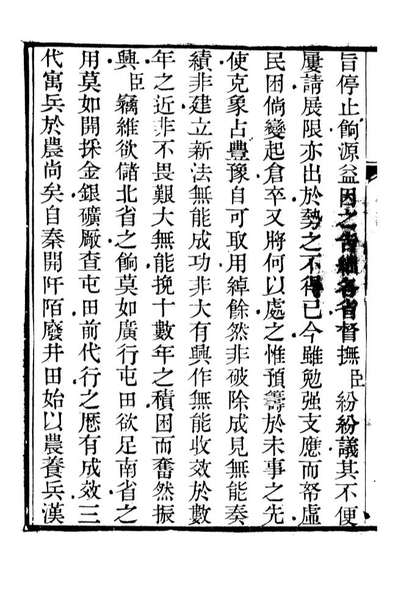 旨停止餉源益因之告絀各省督撫臣紛紛議其不便
屢請展限亦出於勢之不得已今雖勉强支應而帑虛
民困倘變起倉卒又將何以處之惟預籌於未事之先
使克象占豐豫自可取用綽餘然非破除成見無能奏
績非建立新法無能成功非大有興作無能收效於數
年之近非不畏艱大無能挽十數年之積困而奮然振
興臣竊維欲儲北省之餉莫如廣行屯田欲足南省之
用莫如開採金銀礦厰查屯田前代行之歴有成效三
代寓兵於農尚矣自秦開阡陌廢井田始以農養兵漢